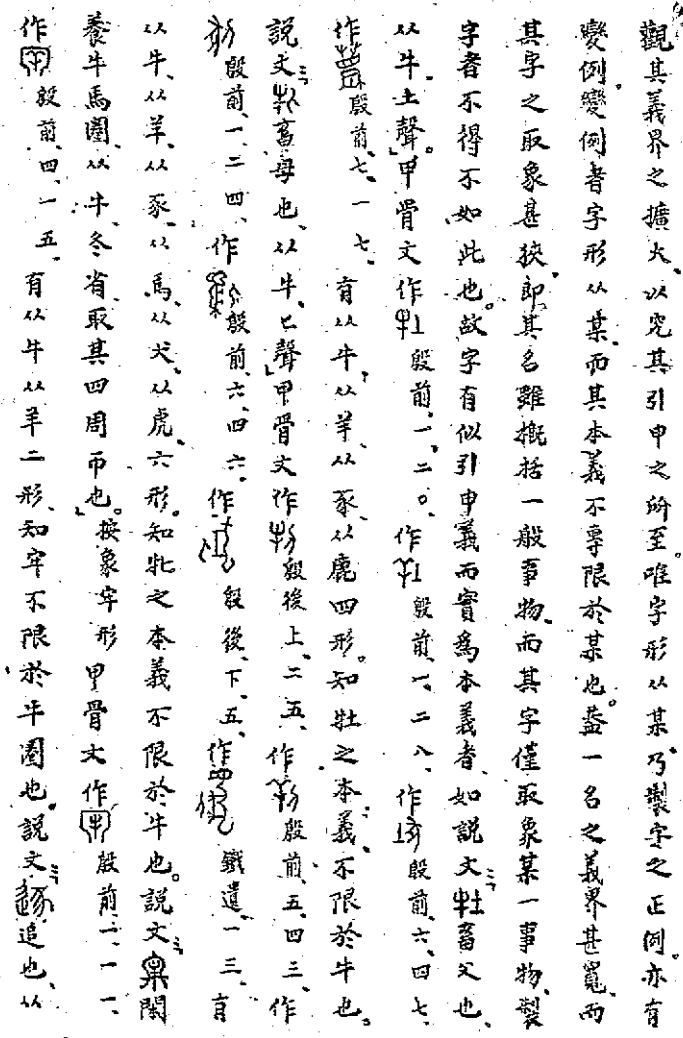 觀其義界之擴大、以究其引申之所至。唯字形从某、乃製字之正例。亦有
變例。變例者、字形从某、而其本義不專限於某也。蓋一名之義界甚寬、而
其字之取象甚狹、即其名雖概括一般事物、而其字僅取象某一事物、製
字者不得不如此也。故字有似引申義而實爲本義者、如説文：牡畜父也、
从牛土聲。甲骨文作 殷前、一、二〇、作 殷前、一、二八、作 殷前、六、四七、
作 殷前、七、一七、有从牛、从羊、从豕、从鹿四形。知牡之本義、不限於牛也。
説文：牝畜母也、从牛、匕聲、甲骨文作 殷後上、二五、作 殷前、五、四三、作
殷前、一、二四、作 殷前、六、四六、作 殷後、下、五、作 鐵遺、一三、有
从牛、从羊、从豕、从馬、从犬、从虎、六形。知牝之本義不限於牛也。説文：閑
養牛馬圈、从牛、冬省、取其四周帀也。按象牢形 甲骨文作 殷前、
作 殷前、四、一五、有从牛从羊二形、知牢不限於牛圈也。説文：追也、从